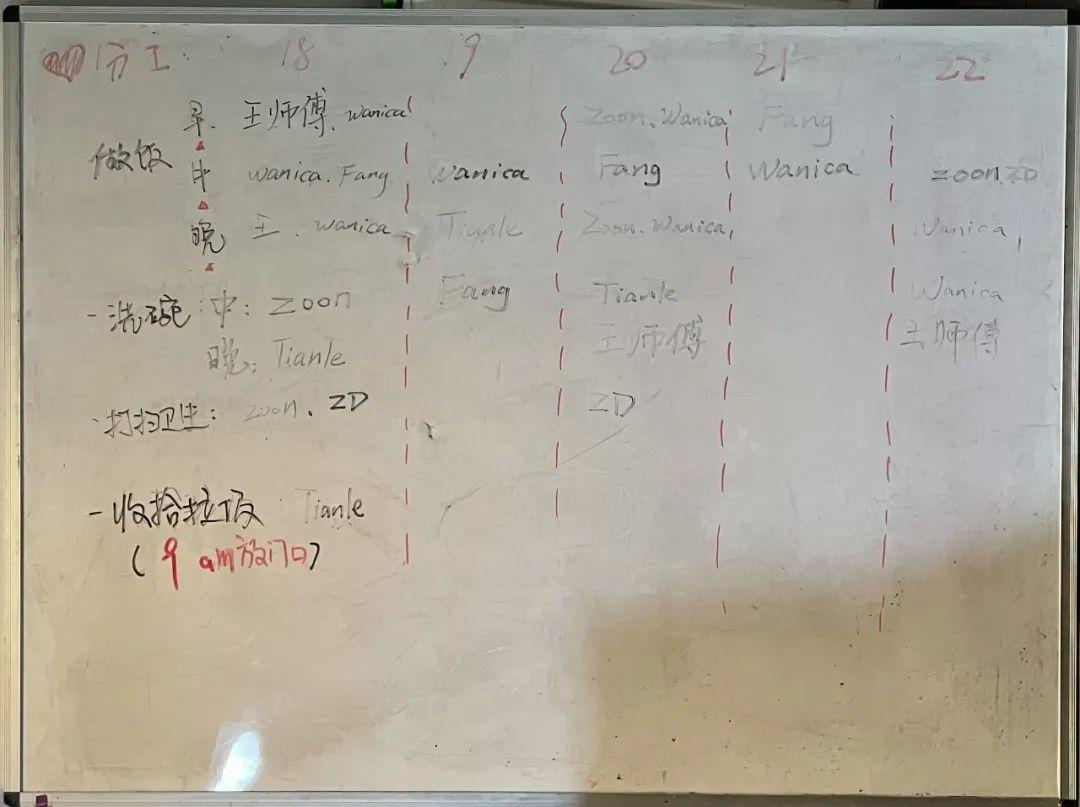 分工: 18 19 20 21 22
早. 王师傅. wanica Zoon. Wanica Fang
做饭 中 wanica. Fang Wanica Fang Wanica zoon. ZD
晚 王. wanica Tianle Zoon. Wanica, Wanica,
- 洗碗: 中: zoon Fang Tianle Wanica
晚: Tianle 王师傅 王师傅
· 打扫卫生: zoon. ZD ZD
- 收拾垃圾: Tianle
(9 am放门口)